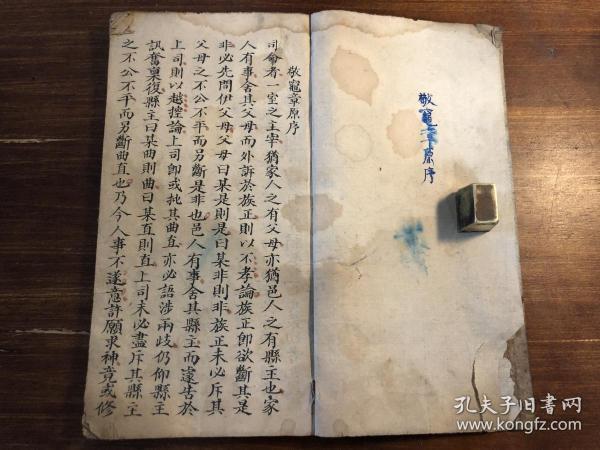 敬竈章原序
敬竈章原序
司命者一室之主宰猶家人之有父母亦猶邑人之有縣主也家
人有事舍其父母而外訴於族正則以不孝論族正卽欲斷其是
非必先問伊父母父母曰某是則是曰某非則非族正未必斥其
父母之不公不平而另斷是非也邑人有事舍其縣主而遽告於
上司則以越控論上司卽或批其曲直亦必語涉兩歧仍仰縣主
訊奪稟復縣主曰某曲則曲曰某直則直上司未必盡斥其縣主
之不公不平而另斷曲直也乃今人事不遂意許願求神竟或修
孔夫子旧书网
www.kongfz.com